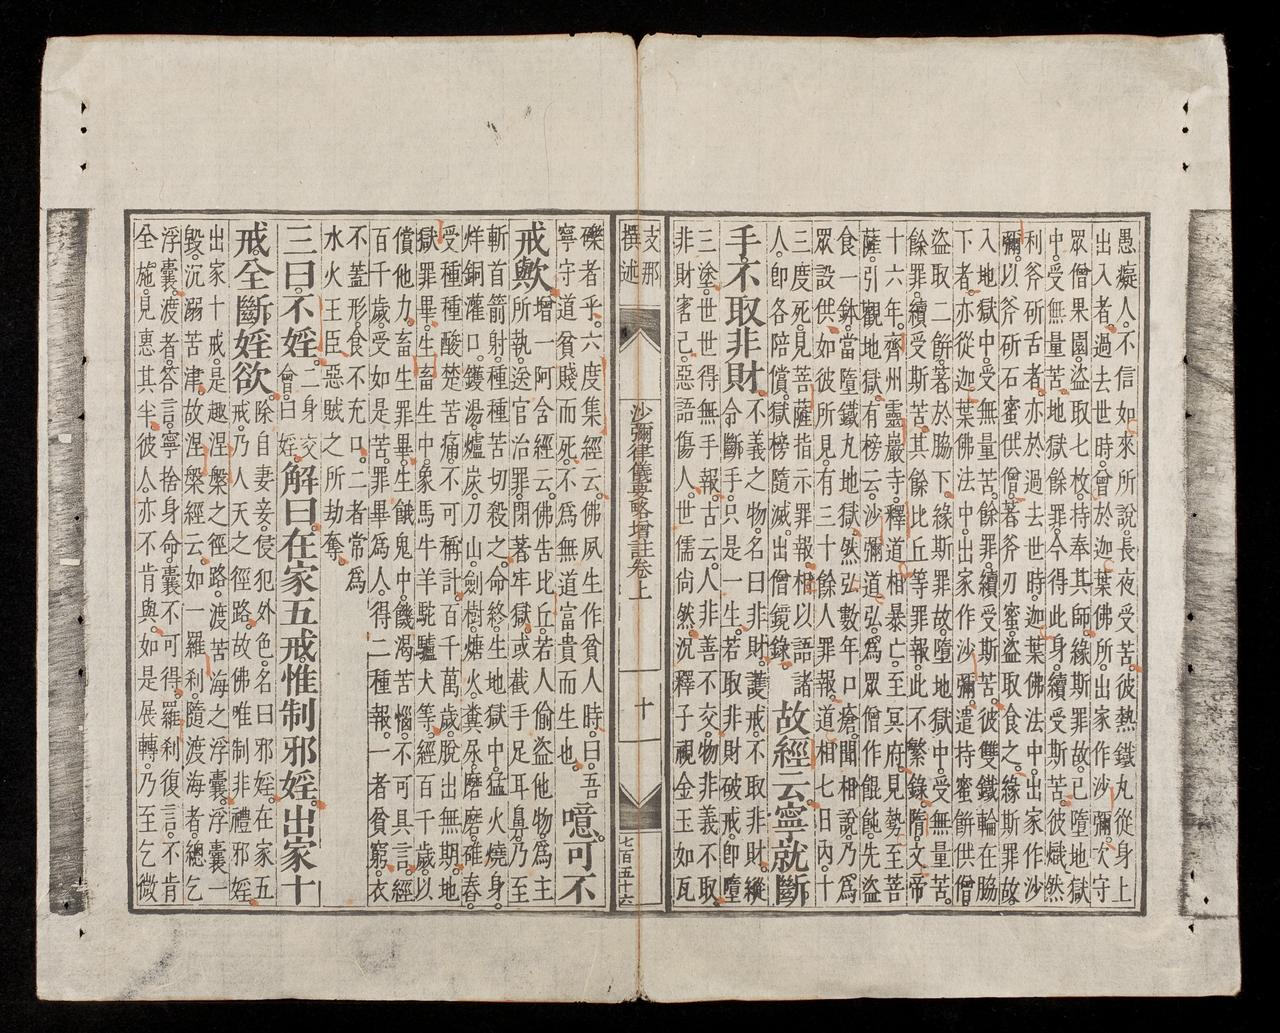 愚癡人。不信如來所說。長夜受苦。彼熱鐵丸。從身上
出入者。過去世時。曾於迦葉佛所。出家作沙彌。次守
眾僧果園。盜取七枚。持奉其師。緣斯罪故。已墮地獄
中。受無量苦。地獄餘罪。今得此身。續受斯苦。彼熾然
利斧斫舌者。亦於過去世時。迦葉佛法中。出家作沙
彌。以斧斫石蜜供僧。著斧刃蜜。盜取食之。緣斯罪故。
入地獄中。受無量苦。餘罪。續受斯苦。彼雙鐵輪在脇
下者。亦從迦葉佛法中。出家作沙彌。遣持蜜餅供僧。
盜取二餅。著於脇下。緣斯罪故。墮地獄中。受無量苦。
餘罪。續受斯苦。其餘比丘等罪報。此不繁錄。隋文帝
十六年。齊州靈巖寺。釋道相暴亡。至冥府。見勢至菩
薩。引觀地獄。有榜云。沙彌道弘。為眾僧作餛飩。先盜
食一鉢。當墮鐵丸地獄。然弘數年口瘡。聞相說。乃為
眾設供。如彼所見。有三十餘人罪報。道相七日內。十
三度死。見菩薩指示罪報。相以語諸
人。即各陪償。獄榜隨滅。出僧鏡錄。
故經云寧就斷
手。不取非財
不義之物。名曰非財。護戒。不取非財。縱
令斷手。只是一生。若取非財破戒。即墮
三塗。世世得無手報。古云。人非善不交。物非義不取。
非財害己。惡語傷人。世儒尚然。況釋子視金玉如瓦
支那
撰述
沙彌律儀要略增註卷上
十
七百五十六
礫者乎。六度集經云。佛夙生作貧人時。曰。吾
寧守道貧賤而死。不為無道富貴而生也。
噫。可不
戒歟。
增一阿含經云。佛告比丘。若人偷盜他物。為主
所執。送官治罪。閉著牢獄。或截手足耳鼻。乃至
斬首箭射。種種苦切殺之。命終。生地獄中。猛火燒身。
烊銅灌口。鑊湯。爐炭。刀山。劍樹。煻火。糞屎。磨磨。碓舂。
受種種酸楚苦痛。不可稱計。百千萬歲。脫出無期。地
獄罪畢。生畜生中。象馬牛羊駝驢犬等。經百千歲。以
償他力。畜生罪畢。生餓鬼中。饑渴苦惱。不可具言。經
百千歲。受如是苦。罪畢為人。得二種報。一者貧窮。衣
不蓋形。食不充口。二者常為
水火王臣。惡賊之所劫奪。
三曰。不婬。
二身交
會曰婬。
解曰。在家五戒。惟制邪婬。出家十
戒。全斷婬欲。
除自妻妾。侵犯外色。名曰邪婬。在家五
戒。乃人天之徑路。故佛唯制非禮邪婬。
出家十戒。是趣涅槃之徑路。渡苦海之浮囊。浮囊一
毀。沉溺苦津。故涅槃經云。如一羅剎。隨渡海者。總乞
浮囊。渡者答言。寧捨身命。囊不可得。羅剎復言。不肯
全施。見惠其半。彼人亦不肯與。如是展轉。乃至乞微